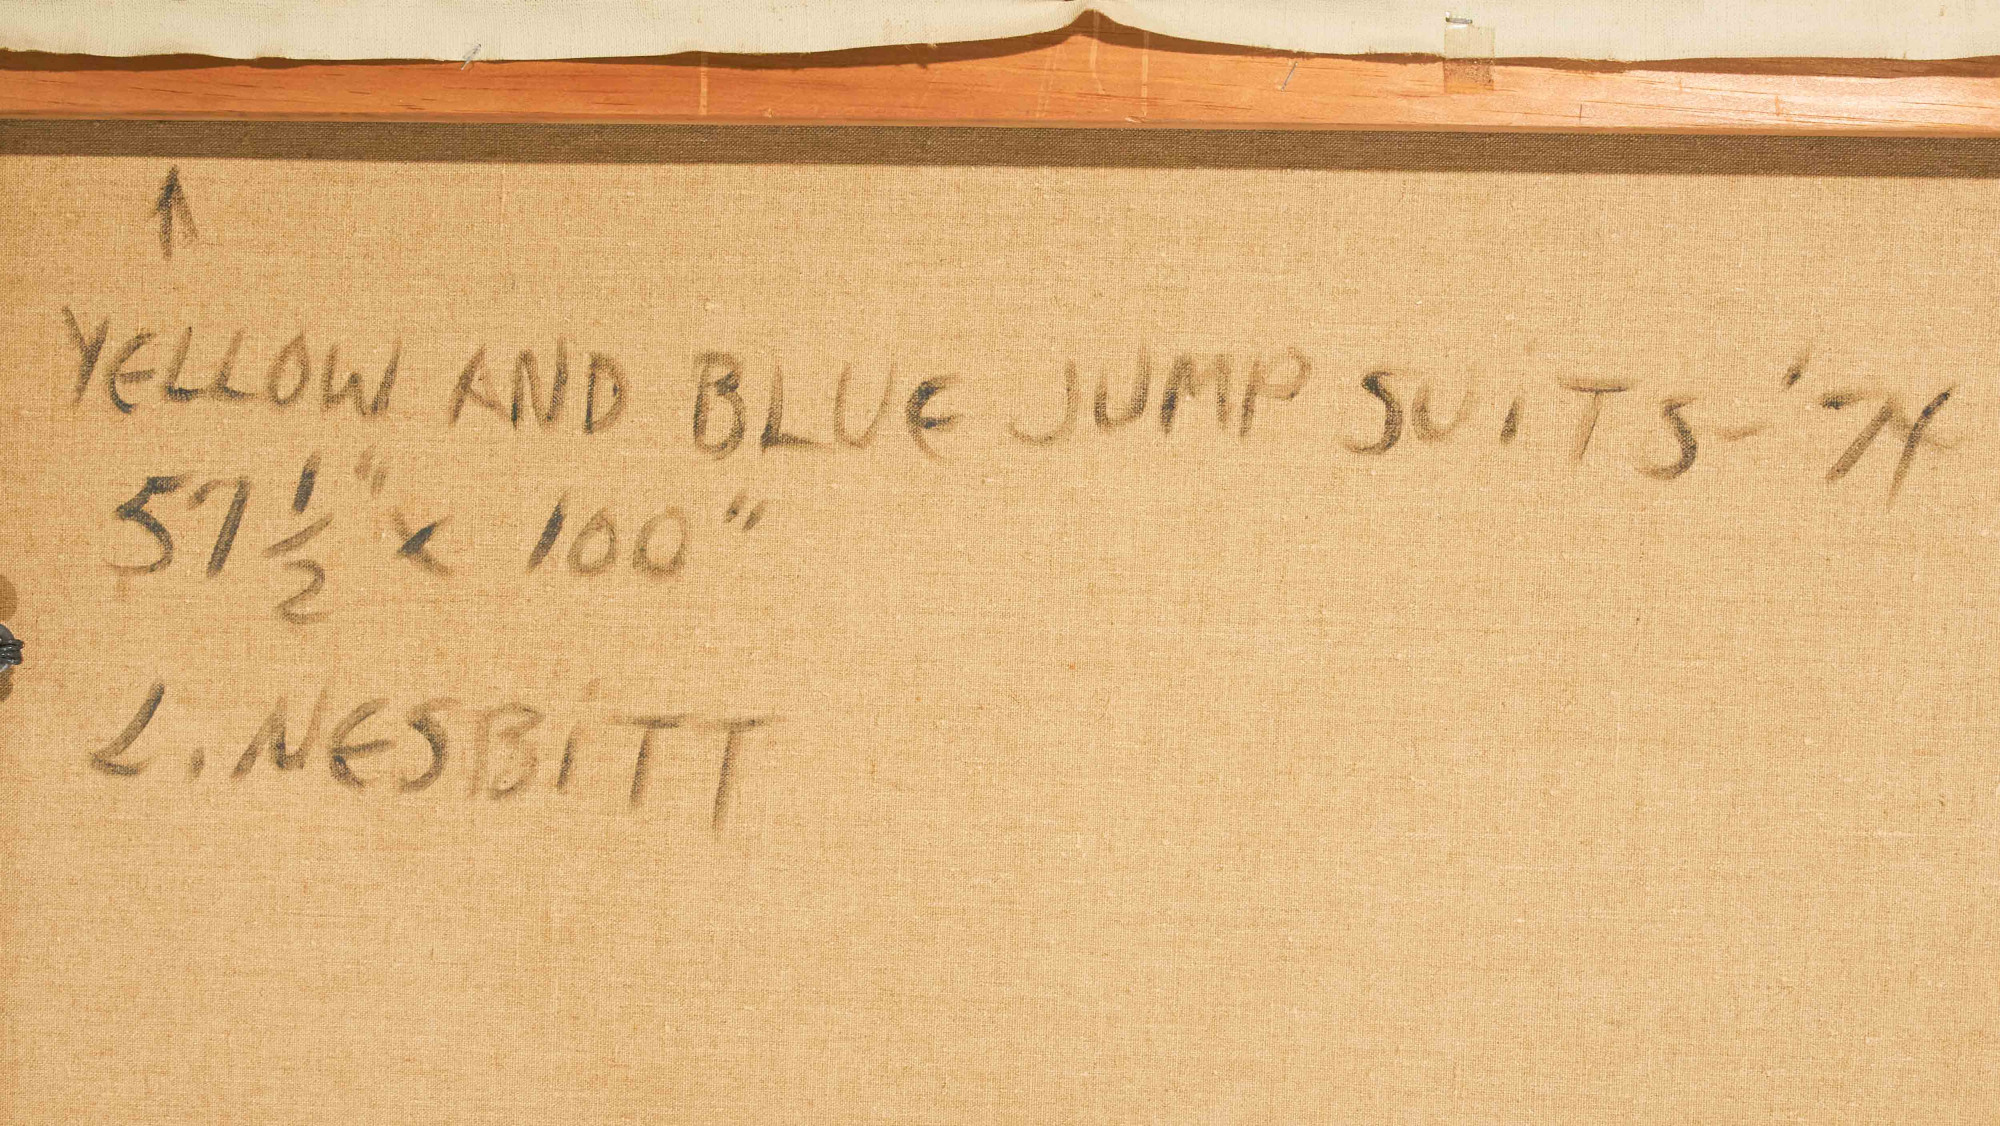 YELLOW AND BLUE JUMP SUITS - '74
57 1/2" x 100"
L. NESBITT